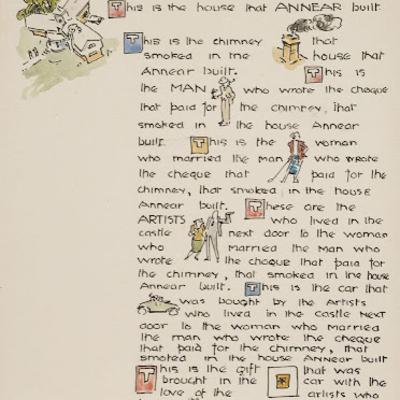 This is the house that ANNEAR built.
This is the chimney that
smoked in the house that
Annear built. This is
the MAN who wrote the cheque
that paid for the chimney, that
smoked in the house Annear
built. This is the woman
who married the man who wrote
the cheque that paid for the
chimney, that smoked in the house
Annear built. These are the
ARTISTS who lived in the
castle next door to the woman
who married the man who
wrote the cheque that paid for
the chimney, that smoked in the house
Annear built. This is the car that
was bought by the Artists
who lived in the Castle next
door to the woman who married
the man who wrote the cheque
that paid for the chimney, that
smoked in the house Annear built
This is the gift that was
brought in the car with the
love of the artists who